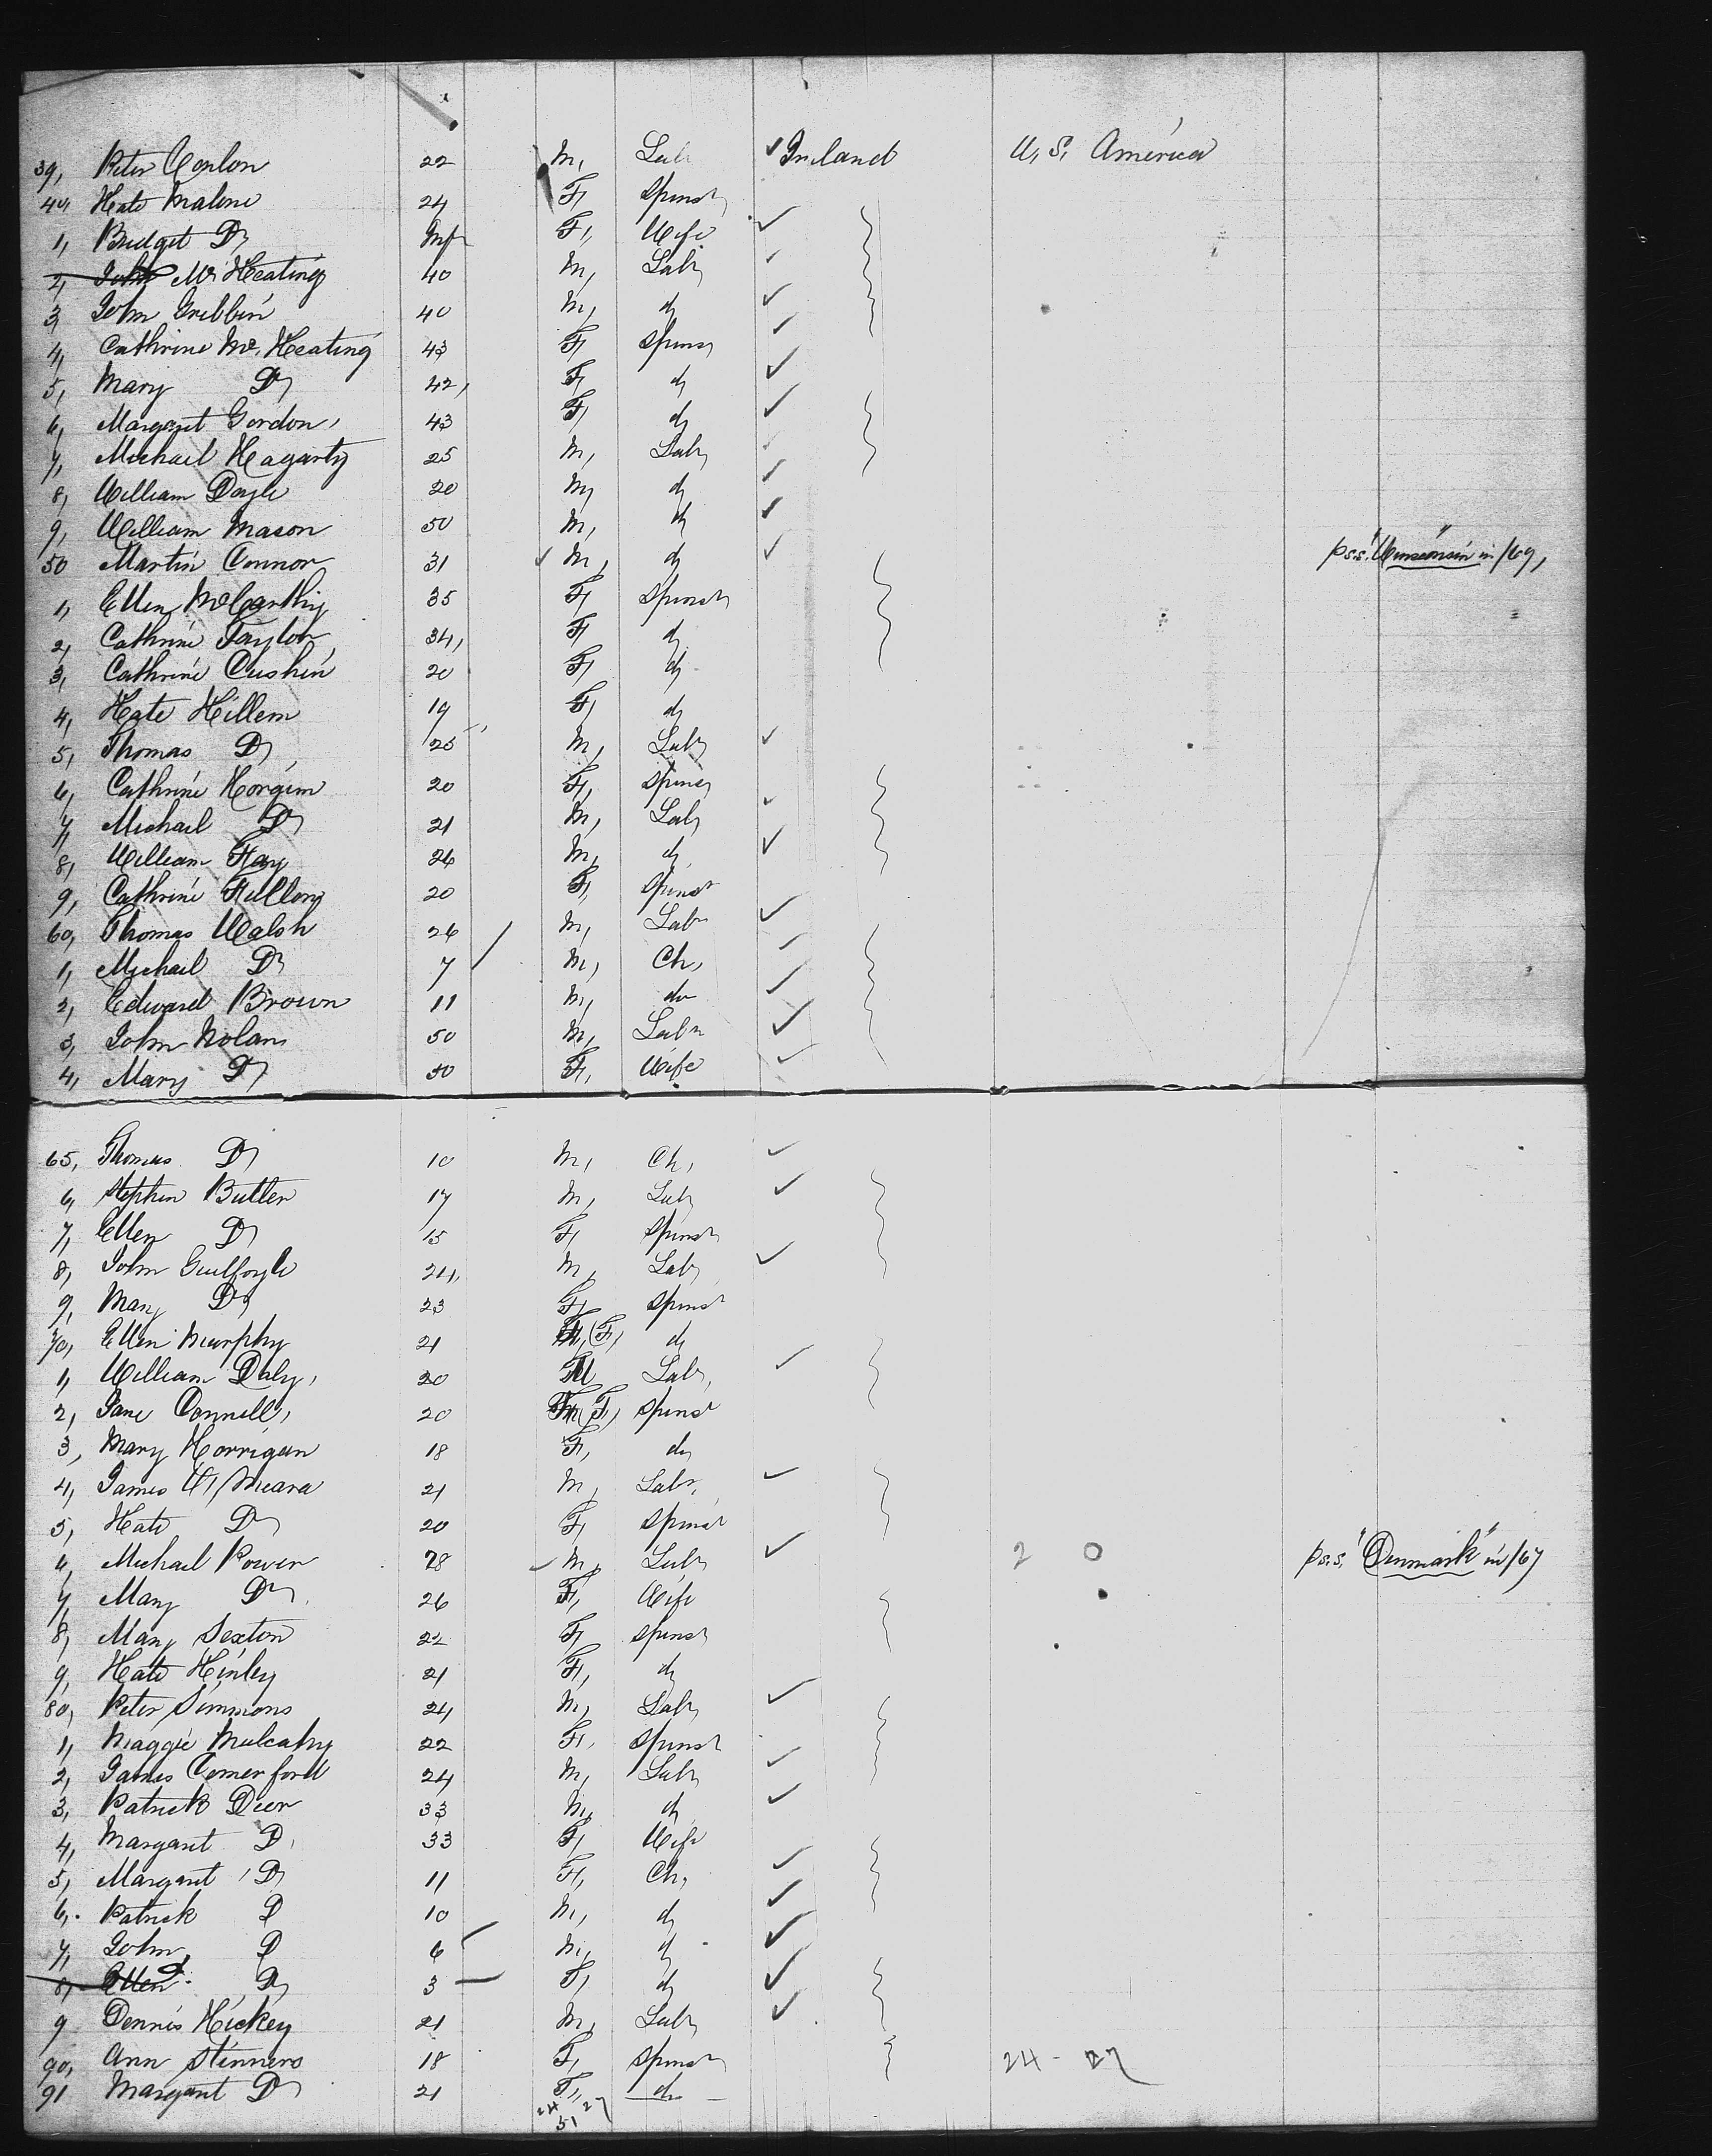 39, Peter Conlon 22 M, Lab Ireland U, S, America
40, Kate Malone 24 F, Spinst
1, Bridget Do Inft F, Wife
2, John Mc Keating 40 M, Labr
3, John Gribbin 40 M, do
4, Cathrine Mc, Keating 43 F, Spinsr
5, Mary Do 42, F, do
6, Margaret Gordon, 43 F, do
7, Michael Hagarty 25 M, Labr
8, William Doyle 20 M, do
9, William Mason 50 M, do
50 Martin Connor 31 M, do pss. "Winsconsin" in /69,
1, Ellen McCarthy 35 F, Spinstr
2, Cathrine Taylor 34, F, do
3, Cathrine Cushin 20 F, do
4, Kate Killem 19 F, do
5, Thomas Do 25 M, Labr
6, Cathrine Horgim 20 F, Spinsr
7, Michael Do 21 M, Labr
8, William Fay 26 M, do
9, Cathrine Hullory 20 F, Spinst
60, Thomas Walsh 26 M, Labr
1, Michael Do 7 M, Ch,
2, Edward Brown 11 M, do
3, John Nolan 50 M, Labr
4, Mary Do 50 F, Wife
65, Thomas Do 10 M, Ch,
6, Stephen Butler 17 M, Labr
7, Ellen Do 15 F, Spinst
8, John Guilfoyle 24, M, Labr
9, Mary Do 23 F, Spinst
70, Ellen Murphy 21 (F) do
1, William Daly, 20 M Labr,
2, Jane Connell, 20 (F) Spinst
3, Mary Horrigan 18 F, do
4, James O'Meara 21 M, Labr,
5, Kate Do 20 F, Spinst
6, Michael Power 28 M, Labr 2 0 pss. "Denmark" in /67
7, Mary Do 26 F, Wife
8, Mary Sexton 22 F, Spinst
9, Kate Kinley 21 F, do
80, Peter Simmons 24, M, Labr
1, Maggie Mulcahy 22 F, Spinst
2, James Comerford 24 M, Labr
3, Patrick Deer 33 M, do
4, Margaret D, 33 F, Wife
5, Margaret Do 11 F, Ch,
6, Patrick D 10 M, do
7, John D 6 M, do
8, Ellen Do 3 F, do
9 Dennis Hickey 21 M, Labr
90, Ann Skinners 18 F, Spinst 24 - 27
91 Margaret Do 21 F, do
24 27
51